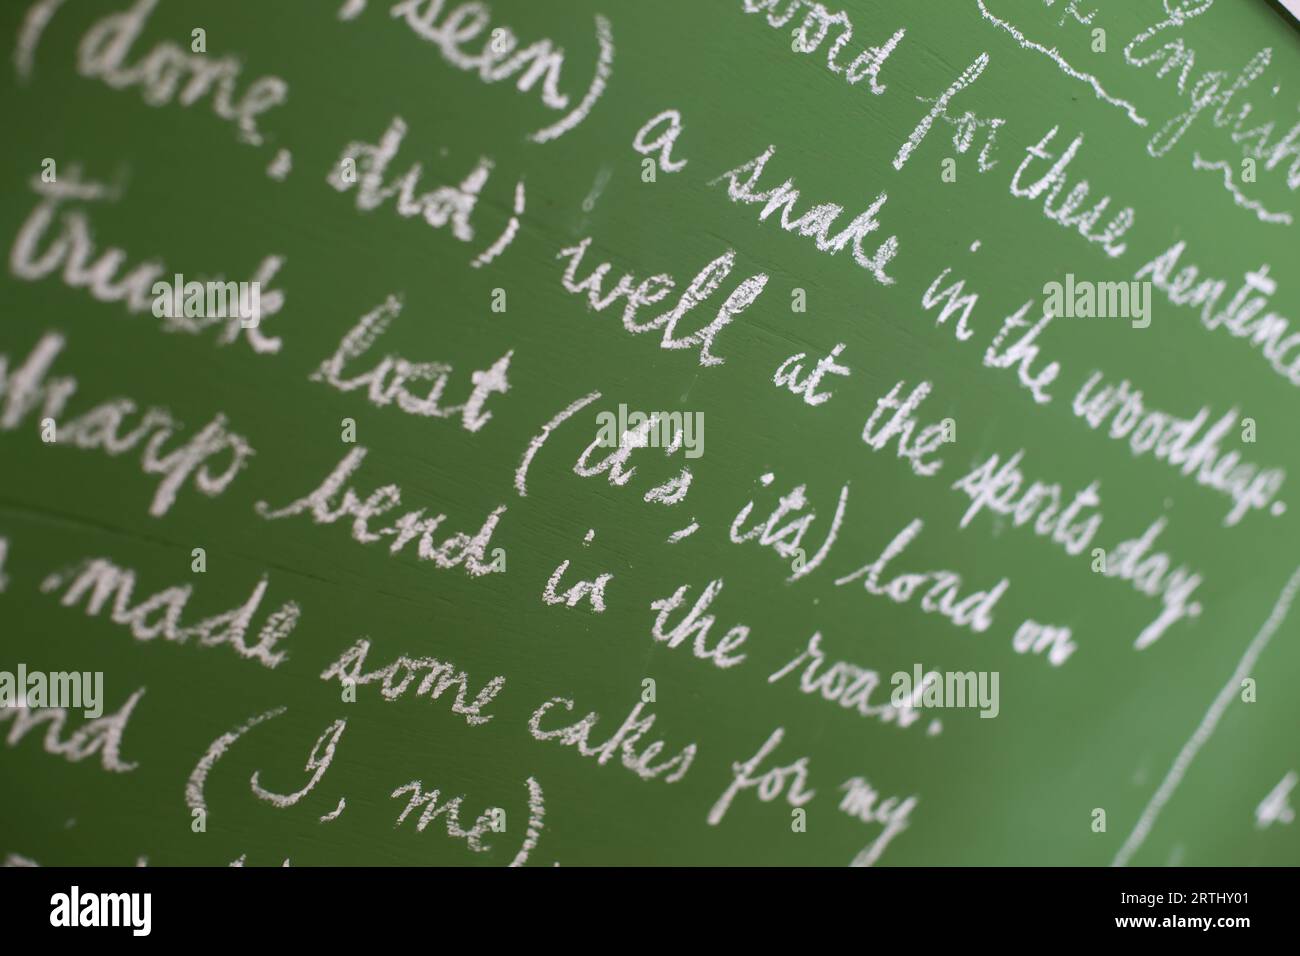 English
word for these sentenc
seen) a snake in the woodheap.
(done, did) well at the sports day.
truck lost (it's, its) load on
sharp bend in the road.
made some cakes for my
nd (I, me)
alamy
Image ID: 2RTHY01
www.alamy.com